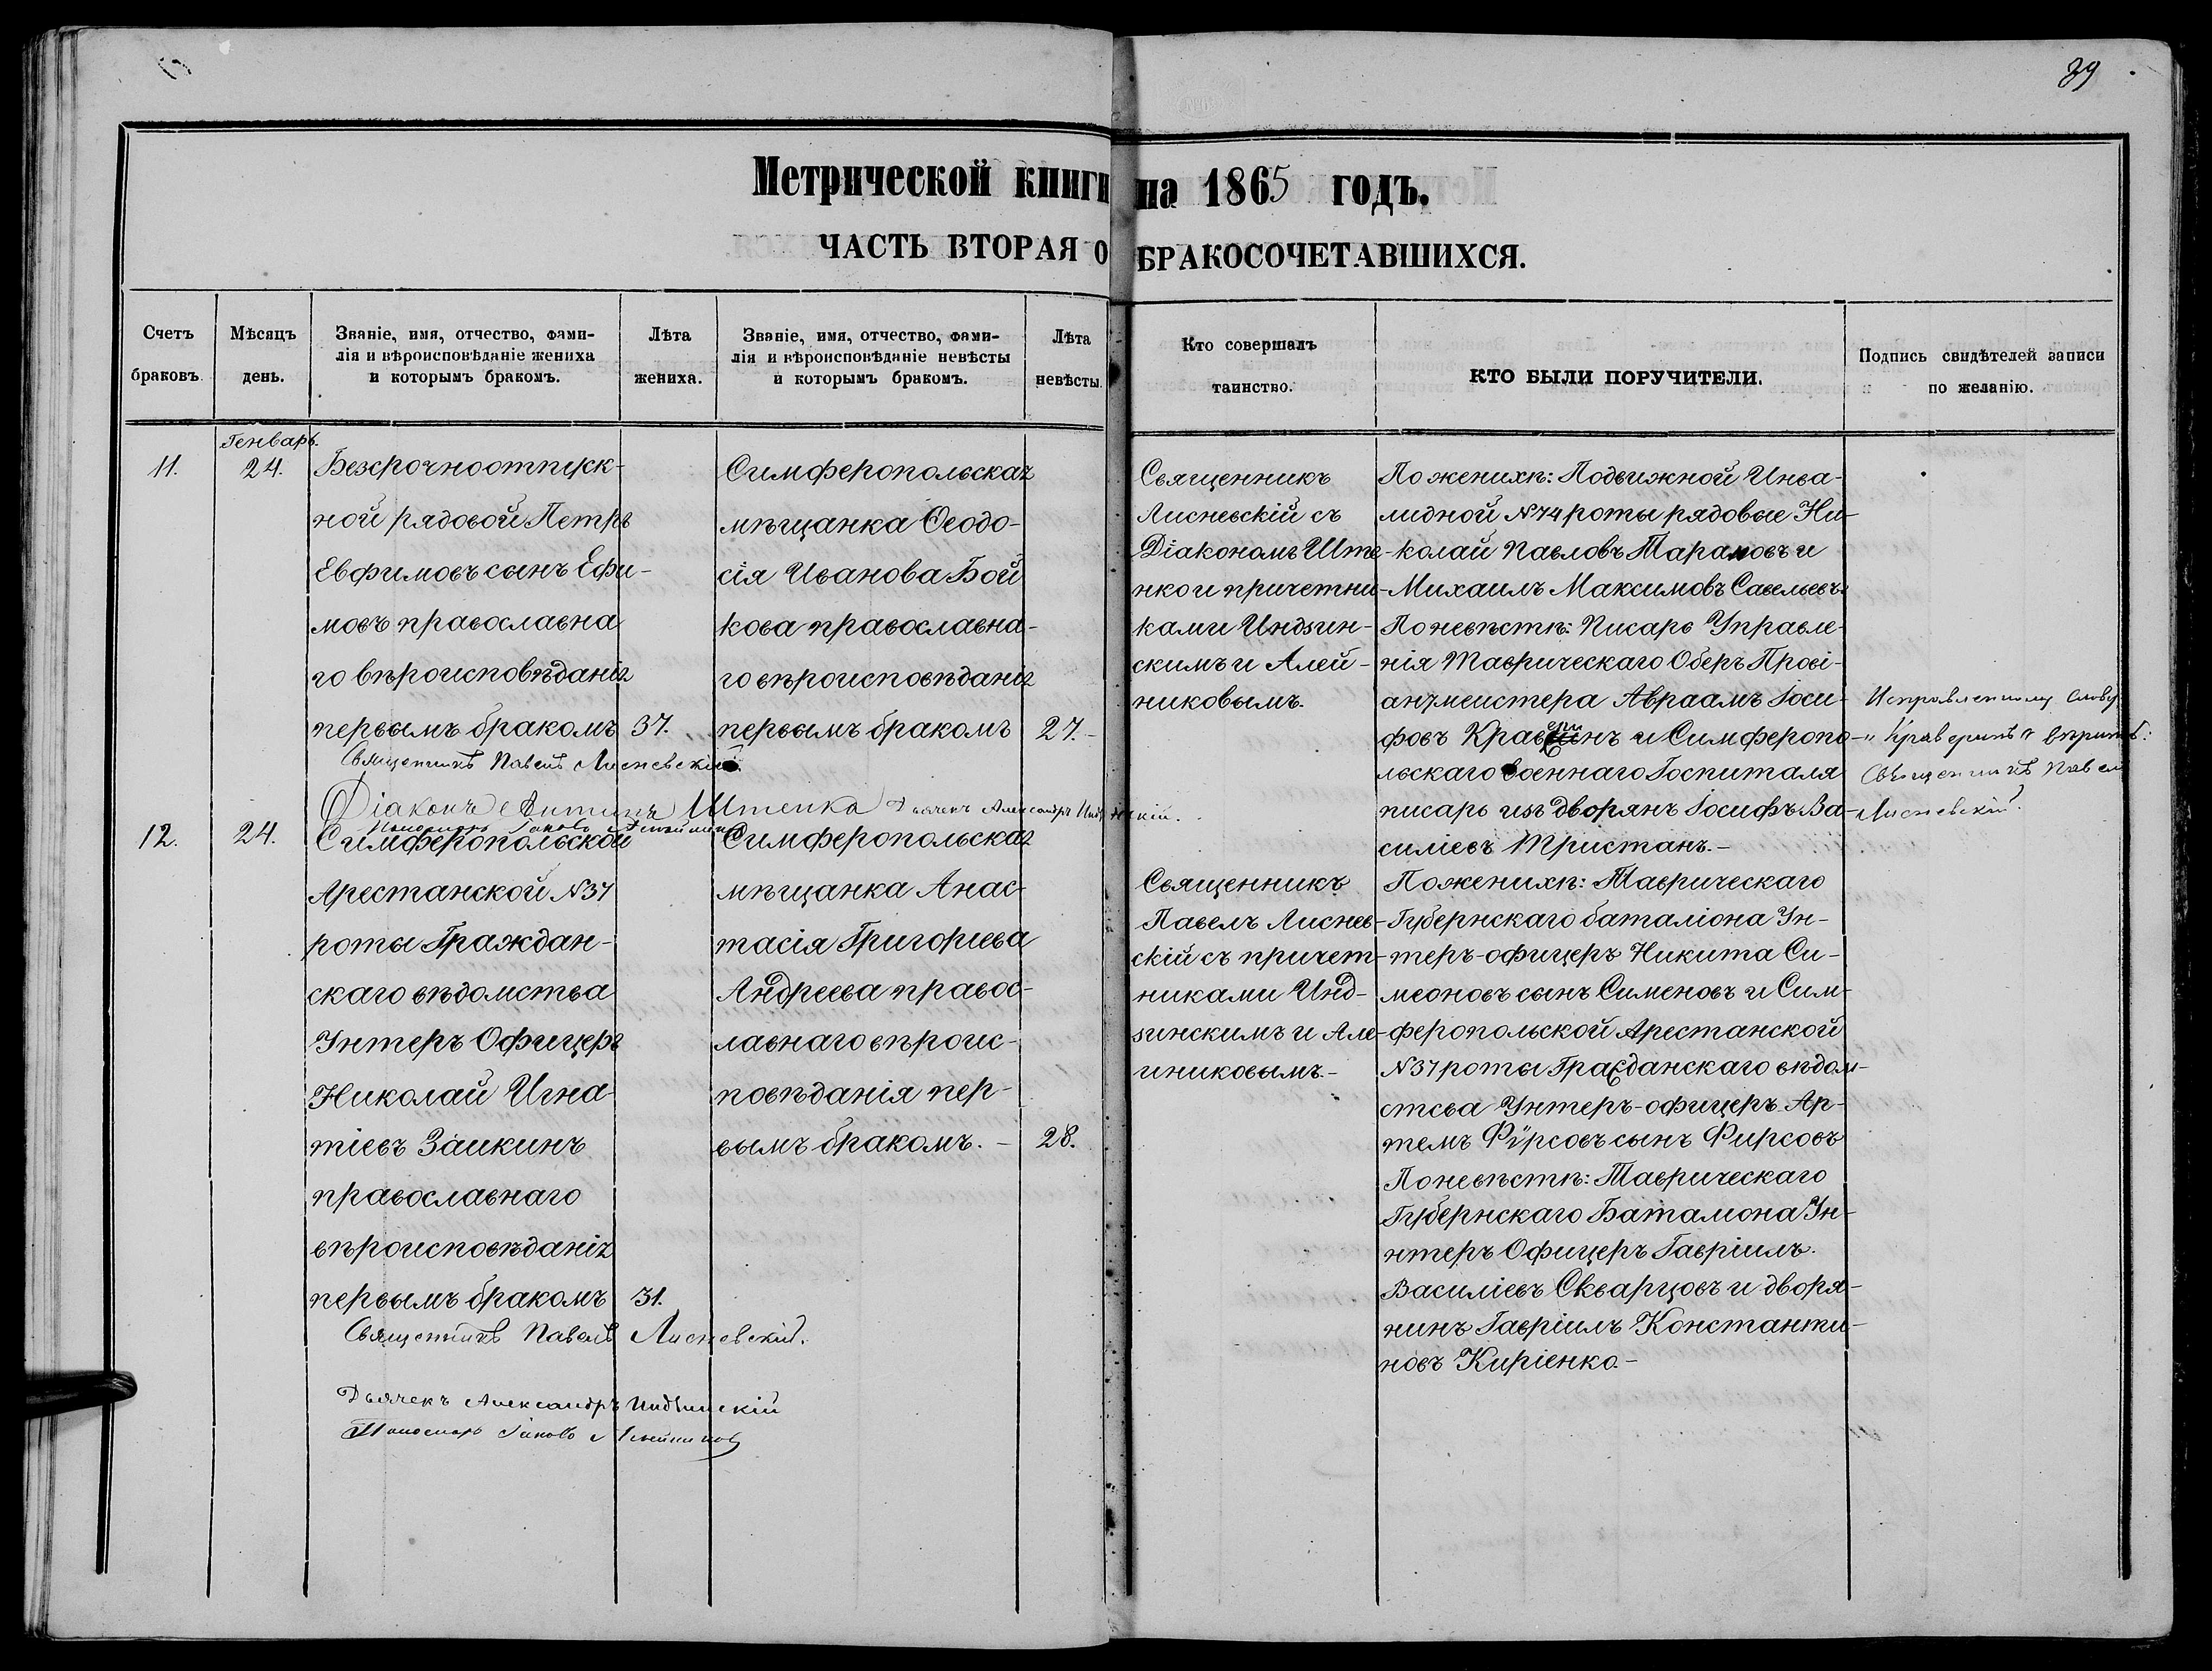 39
Метрической книги на 1865 годъ.
ЧАСТЬ ВТОРАЯ О БРАКОСОЧЕТАВШИХСЯ.
Счетъ
браковъ.
Мѣсяцъ
день.
Званіе, имя, отчество, фами-
лія и вѣроисповѣданіе жениха
и которымъ бракомъ.
Лѣта
жениха.
Званіе, имя, отчество, фами-
лія и вѣроисповѣданіе невѣсты
и которымъ бракомъ.
Лѣта
невѣсты.
Кто совершалъ
таинство.
КТО БЫЛИ ПОРУЧИТЕЛИ.
Подпись свидѣтелей записи
по желанію.
11.
Генварь.
24.
Безсрочноотпуск-
ной рядовой Петръ
Евфимовъ сынъ Ефи-
мовъ православна
го вѣроисповѣданія
первымъ бракомъ
37.
Симферопольская
мѣщанка Ѳеодо-
сія Иванова Бой
кова православна-
го вѣроисповѣданія
первымъ бракомъ
27.-
Священникъ
Лисневскій съ
Діакономъ Ште-
нко и причетни-
ками Индзин-
скимъ и Алей-
никовымъ.
По женихѣ: Подвижной Инва-
лидной №74 роты рядовые Ни-
колай Павловъ Тарановъ и
Михаилъ Максимовъ Савельевъ.
По невѣстѣ: Писарь Управле-
нія Таврическаго Оберъ Прові-
антмейстера Авраамъ Іоси-
фовъ Кравѣринъ и Симферопо-
льскаго военнаго Госпиталя
писарь изъ дворянъ Іосифъ Ва-
силіевъ Тристанъ.-
Исправленному слову
"Краверинъ" вѣрить:
Священникъ Павелъ
Лисневскій.
Священникъ Павелъ Лисневскій.
Діаконъ Антипъ Штенко Дьячекъ Александръ Индзинскій.
Пономарь Іаковъ Алейниковъ
12.
24.
Симферопольской
Арестанской №37
роты Граждан-
скаго вѣдомства
Унтеръ Офицеръ
Николай Игна
тіевъ Заикинъ
православнаго
вѣроисповѣданія
первымъ бракомъ
31.
Симферопольская
мѣщанка Анас-
тасія Григориева
Андреева правос-
лавнаго вѣроис-
повѣданія пер-
вымъ бракомъ.-
28.
Священникъ
Павелъ Лиснев-
скій съ причет-
никами Инд-
зинскимъ и Але-
иниковымъ.-
По женихѣ: Таврическаго
Губернскаго баталіона Ун-
теръ-офицеръ Никита Си-
меоновъ сынъ Сименовъ и Сим-
феропольской Арестанской
№37 роты Гражданскаго вѣдом-
ства Унтеръ-офицеръ Ар-
темъ Фирсовъ сынъ Фирсовъ
По невѣстѣ: Таврическаго
Губернскаго Баталиона Ун-
нтеръ Офицеръ Гавріилъ
Василіевъ Скварцовъ и дворя-
нинъ Гавріилъ Константи-
новъ Киріенко.-
Священникъ Павелъ Лисневскій.
Дьячекъ Александръ Индзинскій
Пономарь Іаковъ Алейниковъ